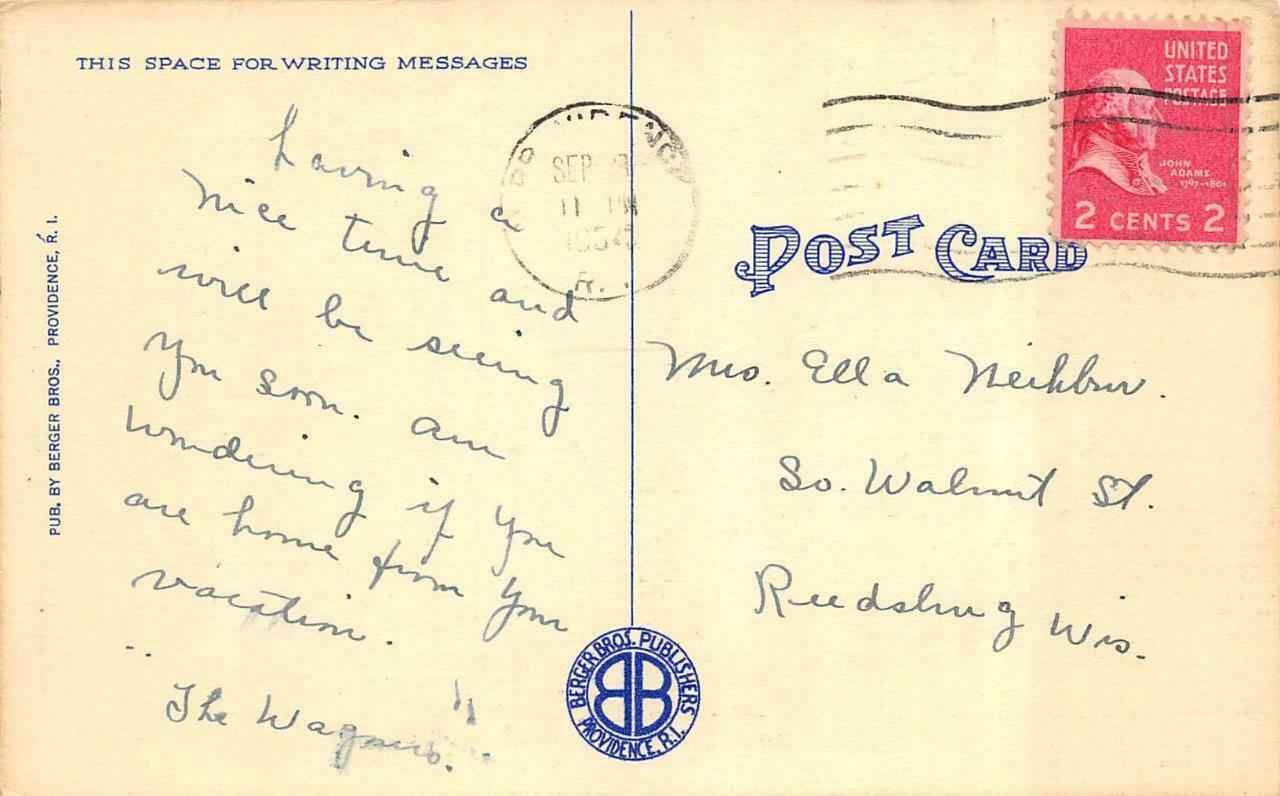 THIS SPACE FOR WRITING MESSAGES
having a
nice time and
will be seeing
you soon. am
wondering if you
are home from your
vacation.
"The Wagners."
PUB. BY BERGER BROS., PROVIDENCE, R. I.
SEP
11 PM
R. I.
UNITED
STATES
POSTAGE
JOHN
ADAMS
1797-1801
2 CENTS 2
POST CARD
Mrs. Ella
So. Walnut St.
Reedsburg Wis.
BERGER BROS. PUBLISHERS
BB
PROVIDENCE, R.I.